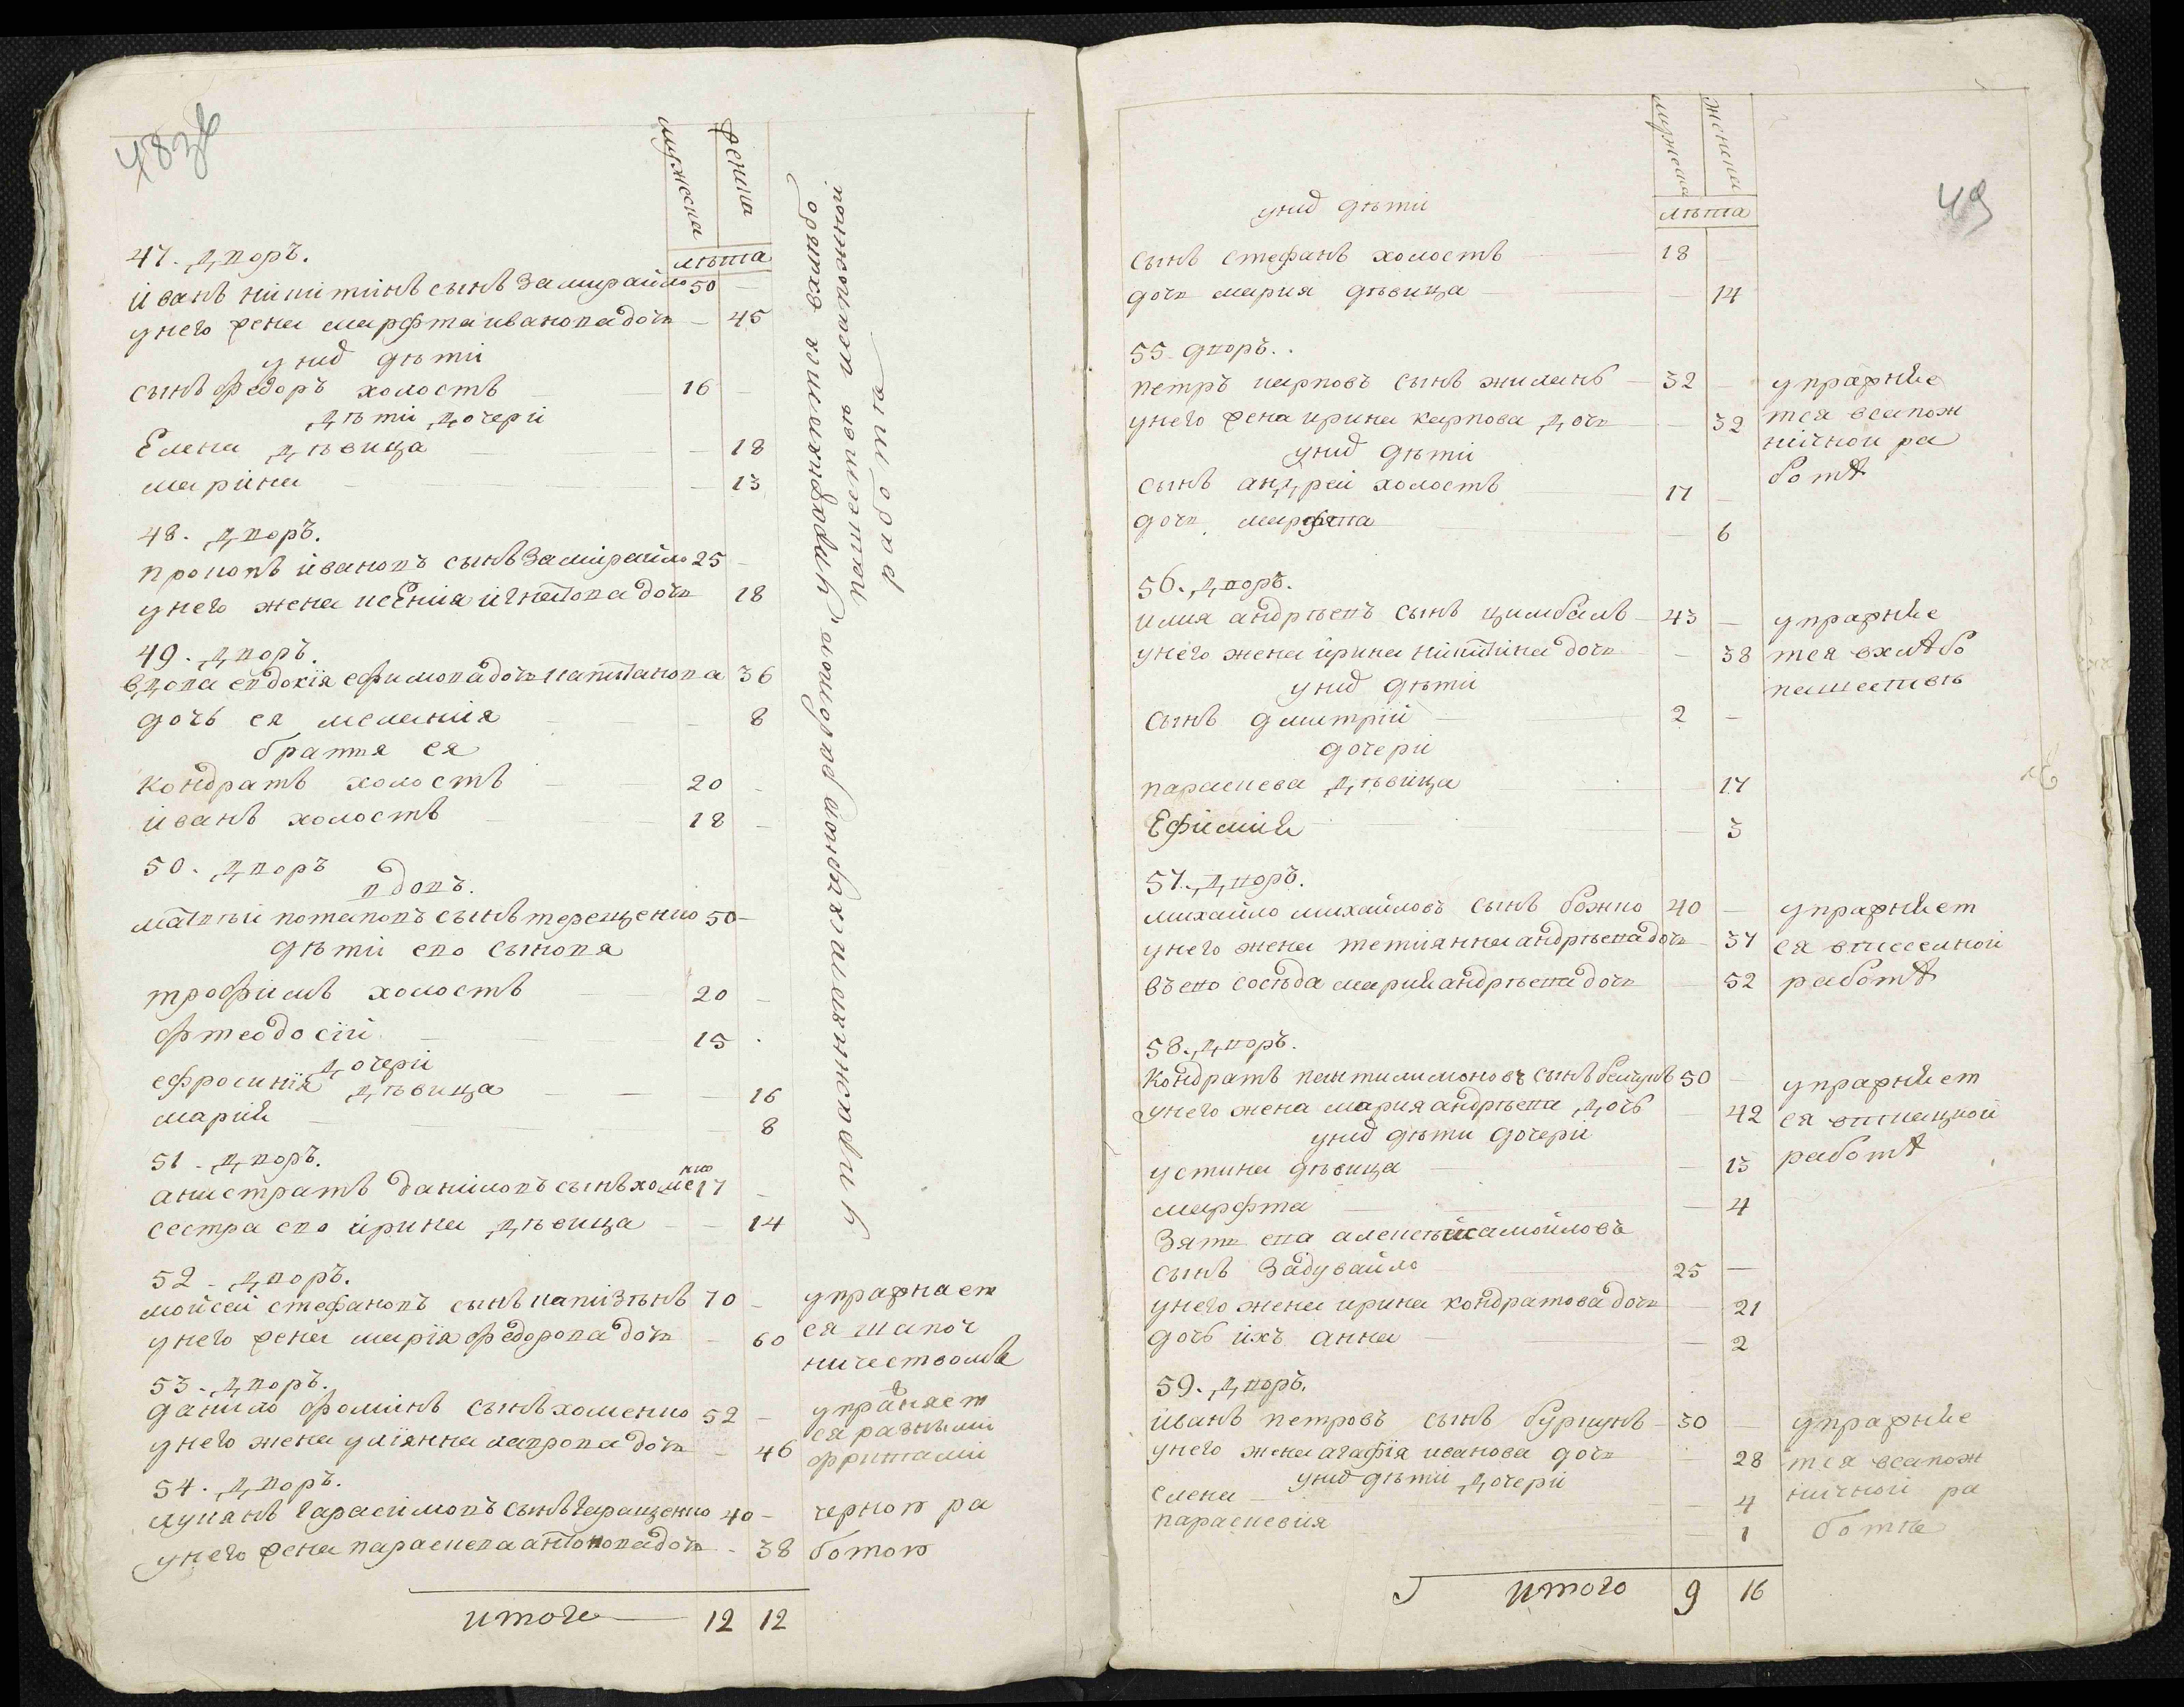 48зв
мужеска
женска
лѣта
47. дворъ.
иванъ никитинъ сынъ Замирайло 50 —
унего жена марфта иванова дочь — 45
уних дѣти
сынъ федоръ холостъ — 16 —
дѣти дочери
Елена дѣвица — 18
марина — 13
48. дворъ.
прокопъ ивановъ сынъ Замирайло 25 —
унего жена ксения игнатова дочь 18
49. дворъ.
вдова евдокія ефимова дочь 36
дочь ея мелания — 8
братия ея
кондратъ холостъ — 20 —
иванъ холостъ — 18 —
50. дворъ
вдовъ.
матвѣй потаповъ сынъ терещенко 50 —
дѣти его сыновя
трофимъ холостъ — 20 —
фтеодосій — 15 .
дочери
ефросинія дѣвица — 16
марий — 8
51. дворъ.
анистратъ даниловъ сынъ хоменко 17 —
сестра его ирина дѣвица — 14
упражняются хлѣбо
пашествѣ исапожничной
работа
52. дворъ.
мойсей стефановъ сынъ 70 —
унего жена марія федорова дочь — 60
упражнает
ся шапоч
ничествомъ
53. дворъ.
данило фоминъ сынъ хоменко 52 —
унего жена уліянна лаврова дочь — 46
упражняет
ся разными
фрштами
54. дворъ.
лукянъ гарасимовъ сынъ гаращенко 40 —
унего жена параскева антонова дочь — 38
черною ра
ботою
итого — 12 12
49
мужеска
женска
лѣта
уних дѣти
сынъ стефанъ холостъ — 18
дочь мария дѣвица — 14
55 дворъ.
петръ карповъ сынъ жиланъ — 32 —
унего жена ирина карпова дочь — 32
уних дѣти
сынъ андрей холостъ — 17 —
дочь марфта — 6
упражнѣе
тся всапож
ничной ра
ботѣ
56. дворъ.
илия андрѣевъ сынъ цимбалъ — 43 —
унего жена ирина никитина дочь — 38
уних дѣти
сынъ дмитрій — 2 —
дочери
параскева дѣвица — 17
Ефимия — 3
упражнѣе
тся вхлѣбо
пашествѣ
57. дворъ.
михайло михайловъ сынъ божко 40 —
унего жена тетиянна андрѣева дочь — 37
въего сосѣда мария андрѣева дочь — 52
упражнѣет
ся
работѣ
58. дворъ.
кондратъ пантилимоновъ сынъ 50 —
унего жена мария андрѣева дочь — 42
уних дѣти дочери
устина дѣвица — 13
марфта — 4
Зять ева алексѣй самойловъ
сынъ Задувайло — 25 —
унего жена ирина кондратова дочь — 21
дочь ихъ анна — 2
упражнѣет
ся вткацкой
работѣ
59. дворъ.
иванъ петровъ сынъ буркунъ — 30 —
унего жена агафія иванова дочь — 28
уних дѣти дочери
елена — 4
параскевия — 1
упражнѣе
тся всапож
ничной ра
ботѣ
итого 9 16